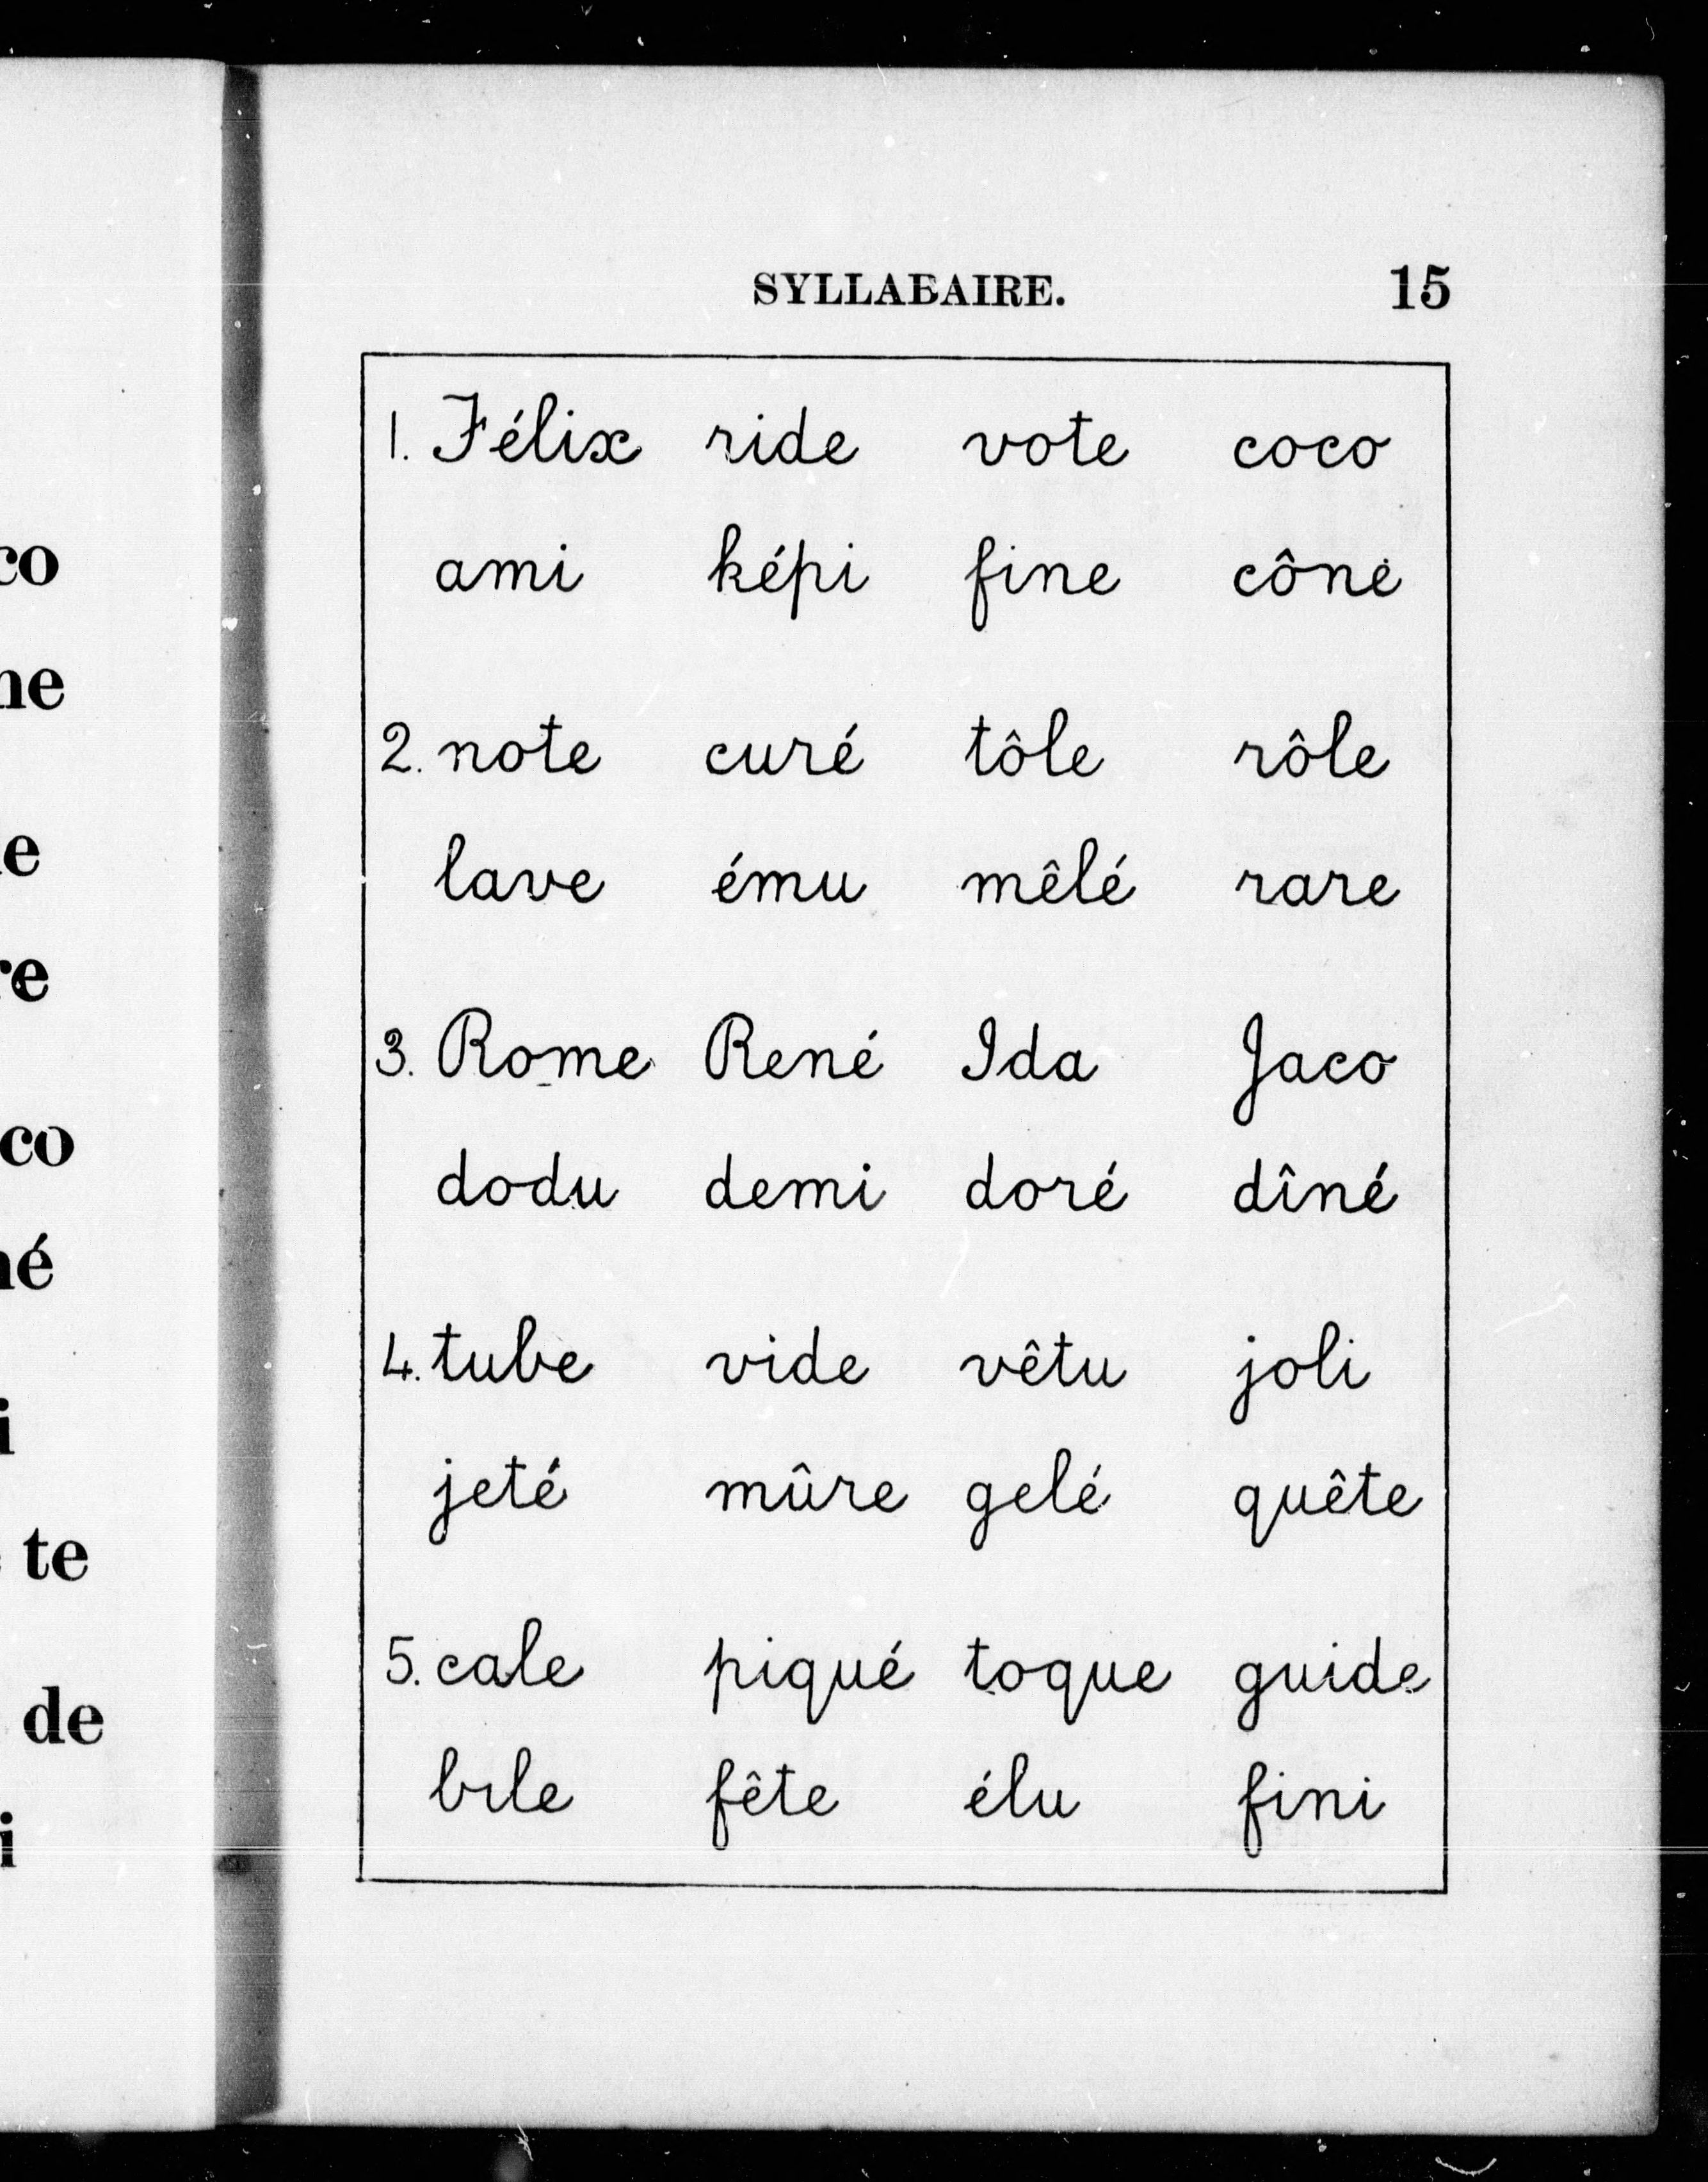 SYLLABAIRE. 15
1. Félix ride vote coco
ami képi fine cône
2. note curé tôle rôle
lave ému mêlé rare
3. Rome René Ida Jaco
dodu demi doré dîné
4. tube vide vêtu joli
jeté mûre gelé quête
5. cale piqué toque guide
bile fête élu fini
co
ne
e
re
co
né
i
te
de
i